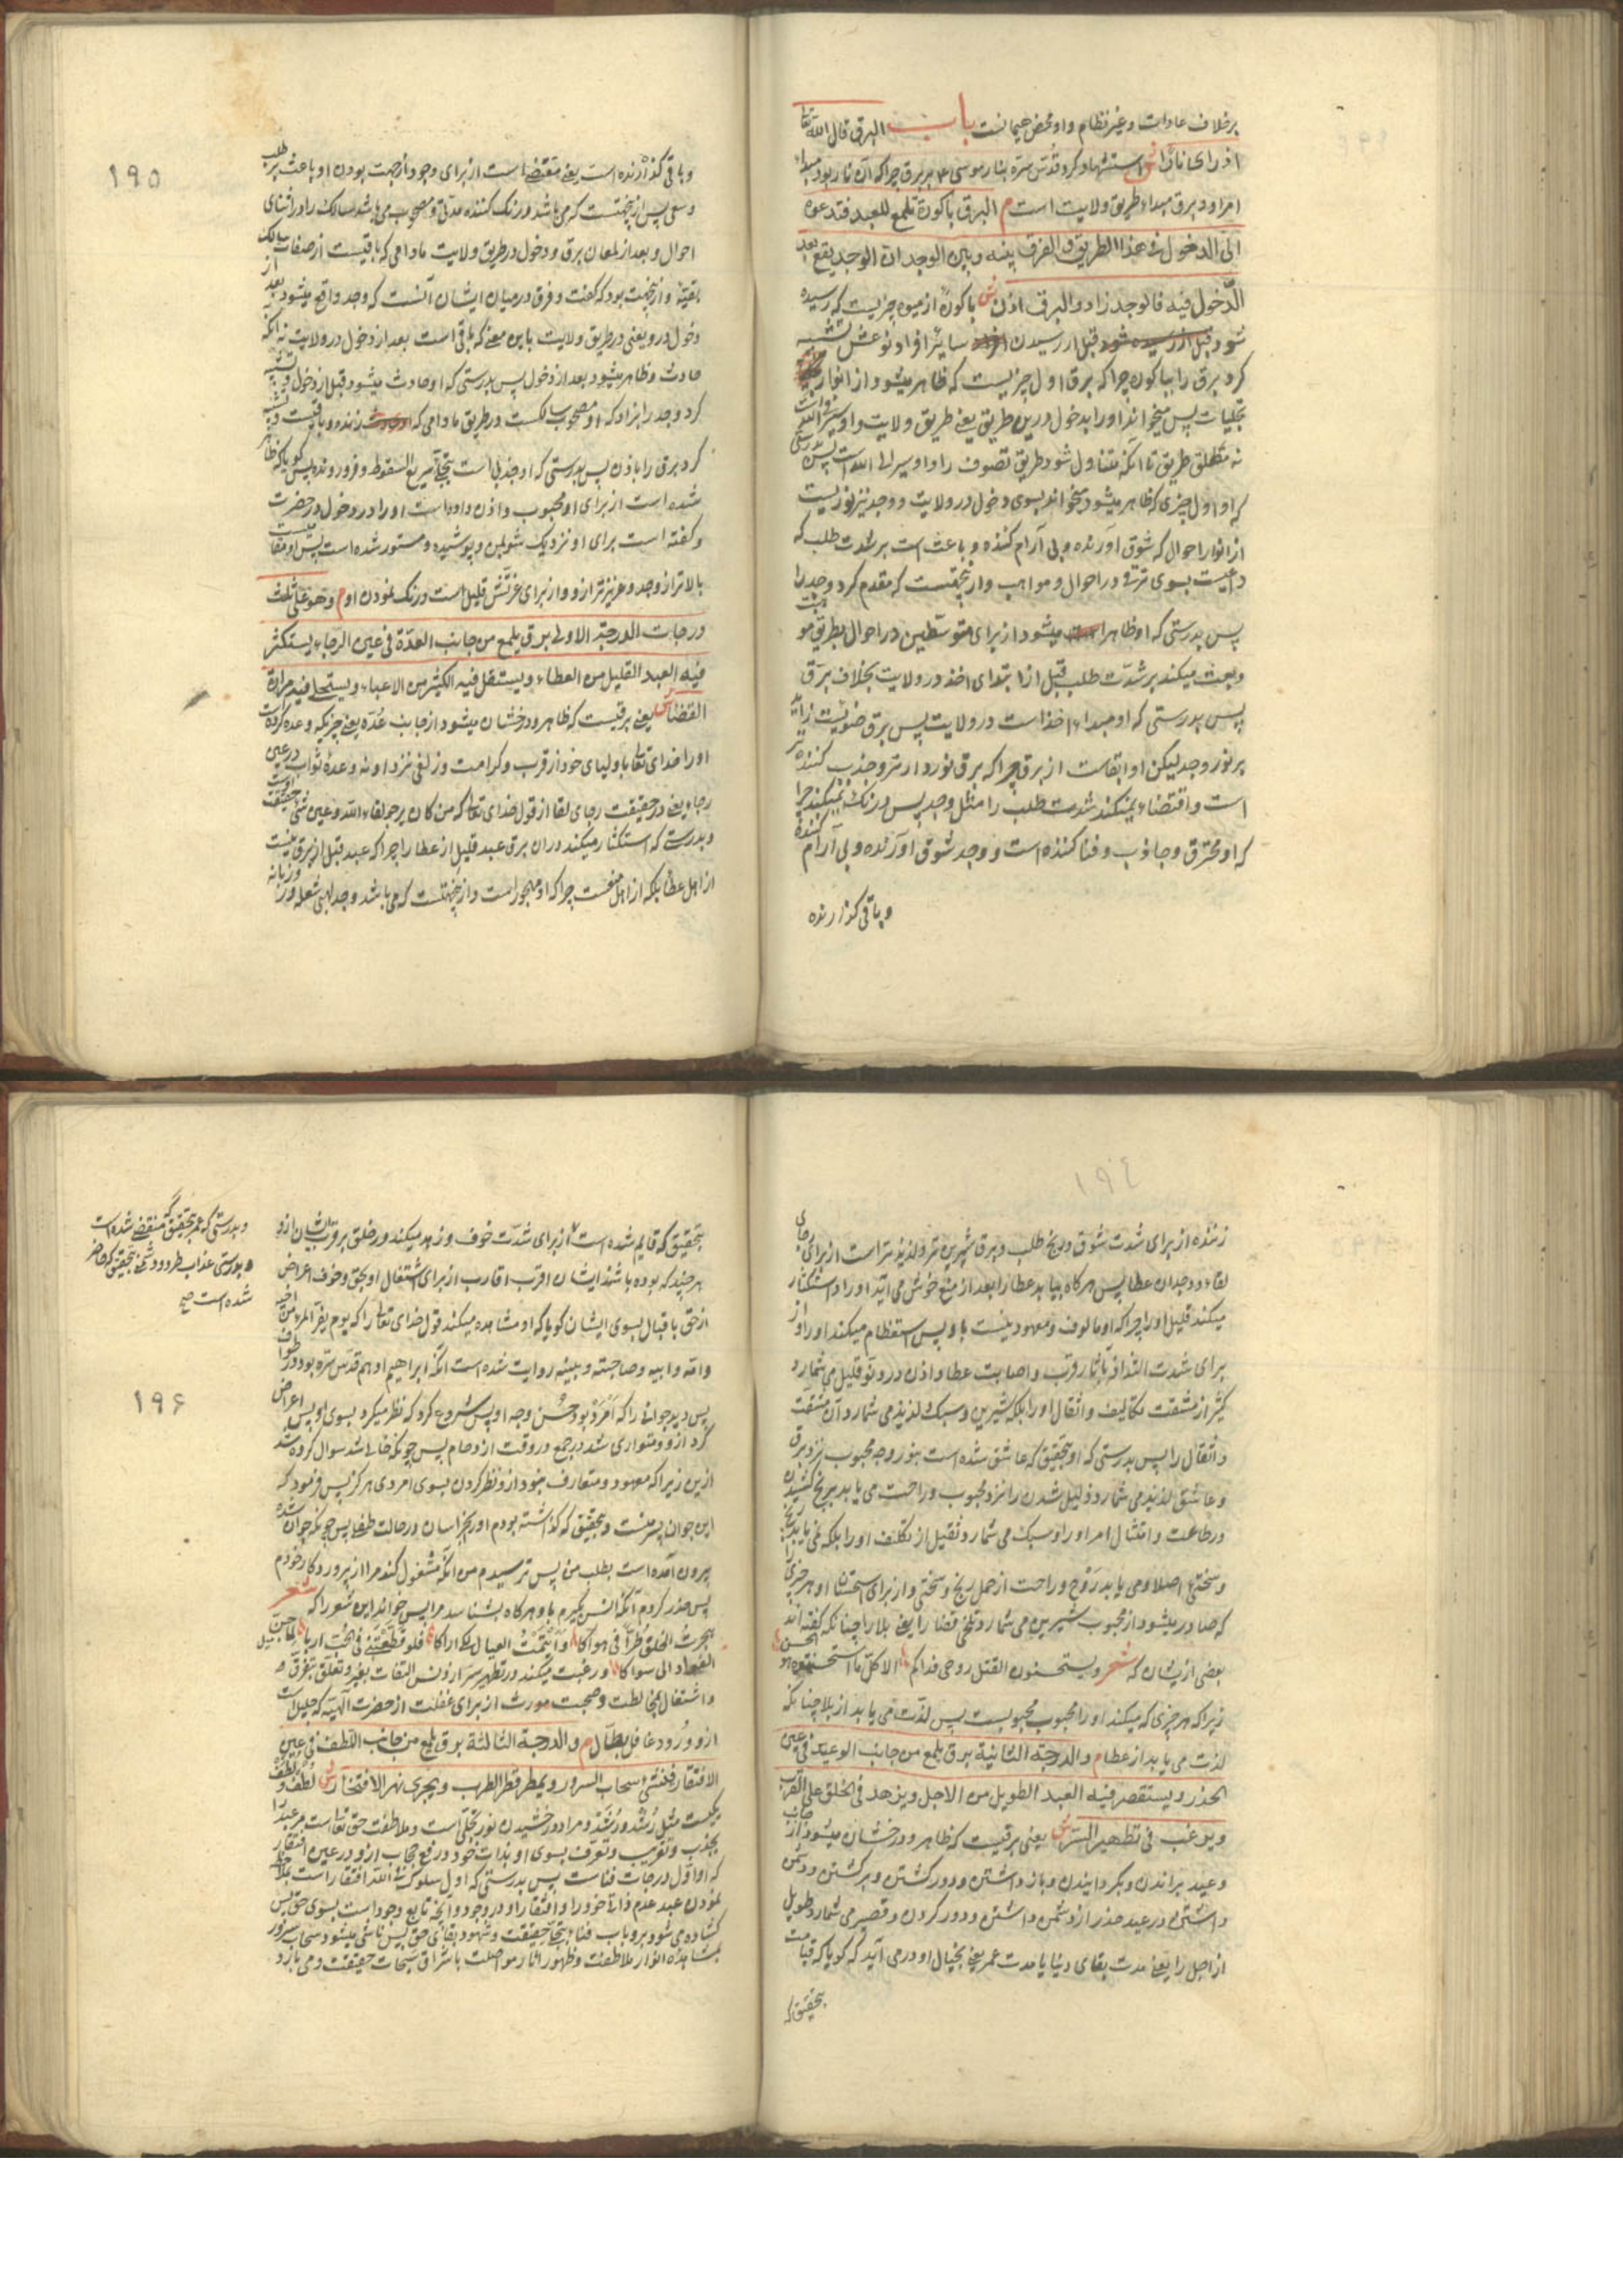 برخلاف عادات و غیر نظام و او محض هیمانست باب البرق قال الله تعالی
اذ رای نارا ش استشهاد کرد قدس سره بنار موسی بر برق چراکه آن نار بود مبداء
امر او و برق مبداء طریق ولایت است م البرق باکورة تلمع للعبد فتدعوه
الی الدخول فی هذا الطریق و الفرق بینه و بین الوجد ان الوجد یقع بعد
الدخول فیه فالوجد زاد و البرق اذن ش باکورة از میوه چیزیست که رسیده
شود قبل از رسیدن سایر افراد نوعش تشبیه
کرد برق را بباکوره چراکه برق اول چیزیست که ظاهر میشود از انوار
تجلیات پس میخواند او را بدخول درین طریق یعنی طریق ولایت و او سیر فی الله است
نه مطلق طریق تا آنکه متناول شود طریق تصوف را و او سیر الی الله است پس بدرستی
که او اول چیزی که ظاهر میشود میخواند بسوی دخول در ولایت و وجد نیز نوریست
از انوار احوال که شوق آورنده و بی آرام کننده و باعث است بر شدت طلب که
داعیست بسوی ترقی در احوال و مواهب و ازینجهتست که مقدم کرد وجد را
پس بدرستی که او ظاهر میشود از برای متوسطین در احوال بطریق موهبت
و بعث میکند بر شدت طلب قبل از ابتدای اخذ در ولایت بخلاف برق
پس بدرستی که او مبداء اخذ است در ولایت پس برق ضوئیست زاید
بر نور وجد لیکن او ابقاست از برق چراکه برق نوردارتر و جذب کننده تر
است و اقتضاء نمیکند شدت طلب را مثل وجد پس درنک نمیکند چرا
که او محرق و جاذب و فنا کننده است و وجد شوق آورنده و بی آرام کننده
و باقی گذارنده
۱۹۵
و باقی گذارنده است یعنی مقتضی است از برای وجود از جهت بودن او باعث بر طلب
و سعی پس ازینجهتست که می باشد درنک کننده مدتی و مصحوب می باشد سالک را در اثنای
احوال و بعد از لمعان برق و دخول در طریق ولایت مادامی که باقیست از صفات سالک
بقیه و ازینجهت بود که گفت و فرق درمیان ایشان آنست که وجد واقع میشود بعد از
دخول درو یعنی در طریق ولایت باین معنی که باقی است بعد از دخول در ولایت نه آنکه
حادث و ظاهر میشود بعد از دخول پس بدرستی که او حادث میشود قبل از دخول و تشبیه
کرد وجد را بزاد که او مصحوب سالکست در طریق مادامی که زنده و باقیست و تشبیه
کرد برق را باذن پس بدرستی که او جذبی است بتجلی سریع السقوط و فرورونده پس گویا که ظاهر
شده است از برای او محبوب و اذن داده است او را در دخول در حضرت
و گفته است برای او نزدیک شو بمن و پوشیده و مستور شده است پس او مقامیست
بالاتر از وجد و عزیزتر ازو و از برای عزتش قلیل است درنک نمودن او م و هو علی ثلث
درجات الدرجة الاولی برق یلمع من جانب العدة فی عین الرجاء یستکثر
فیه العبد القلیل من العطاء و یستقل فیه الکثیر من الاعباء و یستحلی فیه مرارة
القضاء ش یعنی برقیست که ظاهر و درخشان میشود از جانب عده یعنی چیزیکه وعده کرده است
او را خدای تعالی باولیای خود از قرب و کرامت و زلفی نزد او نه وعدهٔ ثواب در عین
رجاء یعنی در حقیقت رجای لقا از قول خدای تعالی که من کان یرجو لقاء الله و عین شئ حقیقت اوست
و بدرستی که استکثار میکند در آن برق عبد قلیل از عطا را چراکه عبد قبل از برق نیست
از اهل عطا بلکه از اهل منعست چراکه او مهجور است و ازینجهتست که می باشد وجد آتشی شعله ور و زبانه
۱۹٤
زننده از برای شدت شوق و رنج طلب و برق شیرین تر و لذیذتر است از برای رجای
لقاء و وجدان عطا پس هرگاه بیابد عطا را بعد از منع خوش می آید او را و استکثار
میکند قلیل او را چراکه او مالوف و معهود نیست باو پس استعظام میکند او را و از
برای شدت التذاذ بآثار قرب و اصابت عطا و اذن در دنو قلیل می شمارد
کثیر از مشقت تکالیف و اثقال او را بلکه شیرین و سبک و لذیذ می شمارد آن مشقت
و اثقال را پس بدرستی که او بتحقیق که عاشق شده است بنور وجه محبوب نزد برق
و عاشق لذیذ می شمارد ذلیل شدن را نزد محبوب و راحت می یابد برنج کشیدن
در طاعت و امتثال امر او را و سبک می شمارد ثقیل از تکلف او را بلکه نمی یابد رنج
و سختی اصلا و می یابد روح و راحت از حمل رنج و سختی و از برای استحسان او هر چیزی را
که صادر میشود از محبوب شیرین می شمارد تلخی قضا را یعنی بلا را چنانکه گفته اند
بعضی ازیشان که شعر و یستحسنون القتل روحی فداکم الا کل ما استحسنتموه هو الحسن
زیرا که هر چیزی که میکند او را محبوب محبوبست پس لذت می یابد از بلا چنانکه
لذت می یابد از عطا م و الدرجة الثانیة برق یلمع من جانب الوعید فی عین
الحذر و یستقصر فیه العبد الطویل من الاجل و یزهد فی الخلق علی القرب
و یرغب فی تطهیر السر ش یعنی برقیست که ظاهر و درخشان میشود از جانب
وعید براندن و بگردانیدن و بازداشتن و دور گشتن و برگشتن و دشمن
داشتن در عین حذر از دشمن داشتن و دور کردن و قصیر می شمارد طویل
از اجل را یعنی مدت بقای دنیا یا مدت عمر یعنی بخیال او درمی آید که گویا که قیامت
بتحقیق که
بتحقیق که قایم شده است از برای شدت خوف و زهد میکند در خلق بر قرب ایشان ازو
هر چند که بوده باشند ایشان اقرب اقارب از برای اشتغال او بحق و خوف اعراض
از حق باقبال بسوی ایشان گویا که او مشاهده میکند قول خدای تعالی را که یوم یفر المرء من اخیه
و امه و ابیه و صاحبته و بنیه روایت شده است آنکه ابراهیم ادهم قدس سره بود در طواف
پس دید جوانی را که امرد بود حسن وجه او پس شروع کرد که نظر میکرد بسوی او پس اعراض
کرد ازو و متواری شد در جمع در وقت ازدحام پس چونکه خالی شد سوال کرده شد
ازین زیرا که معهود و متعارف نبود ازو نظر کردن بسوی امردی هرگز پس فرمود که
این جوان پسر منست و بتحقیق که گذاشته بودم او را بخراسان در حالت طفلی پس چونکه جوان شده
بیرون آمده است بطلب من پس ترسیدم من آنکه مشغول کند مرا از پروردگار خودم
پس حذر کردم آنکه انس بگیرم باو هرگاه بشناسد مرا پس خواند این شعر را که شعر
هجرت الخلق طرا فی هواکا و ایتمت العیال لکی اراکا فلو قطعتنی فی الحب اربا لما حن
الفؤاد الی سواکا و رغبت میکند در تطهیر سر از ونس التفات بغیر و تعلق بتفرق
و اشتغال بمخالطت و صحبت مورث از برای غفلت از حضرت الهیه که جلیل است
از ورود غافل بطال م و الدرجة الثالثة برق یلمع من جانب اللطف فی عین
الافتقار فینشئ سحاب السرور و یمطر قطر الطرب و یجری نهر الافتخار ش لطف و لطف
یکیست مثل رشد و رشد و مراد درخشیدن نور تجلی است و ملاطفت حق تعالی است مر عبد را
بجذب و تقریب و تعرف بسوی او بذات خود و رفع حجاب ازو در عین افتقار
که او اول درجات فناست پس بدرستی که اول سلوک فی الله افتقار است بملاحظه
نمودن عبد عدم ذاتی خود را و افتقار او در وجود و آنچه تابع وجود است بسوی حق پس
گشاده می شود برو باب فناء بتجلی حقیقت و شهود بقای حق پس ناشی میشود سحاب سرور
بمشاهده انوار ملاطفت و ظهور آثار مواصلت باشراق سبحات حقیقت و می بارد
و بدرستی که عمر بتحقیق که منقضی شده است
و بدرستی عذاب طرد و دشمنی بتحقیق که حاضر
شده است صح
۱۹۶